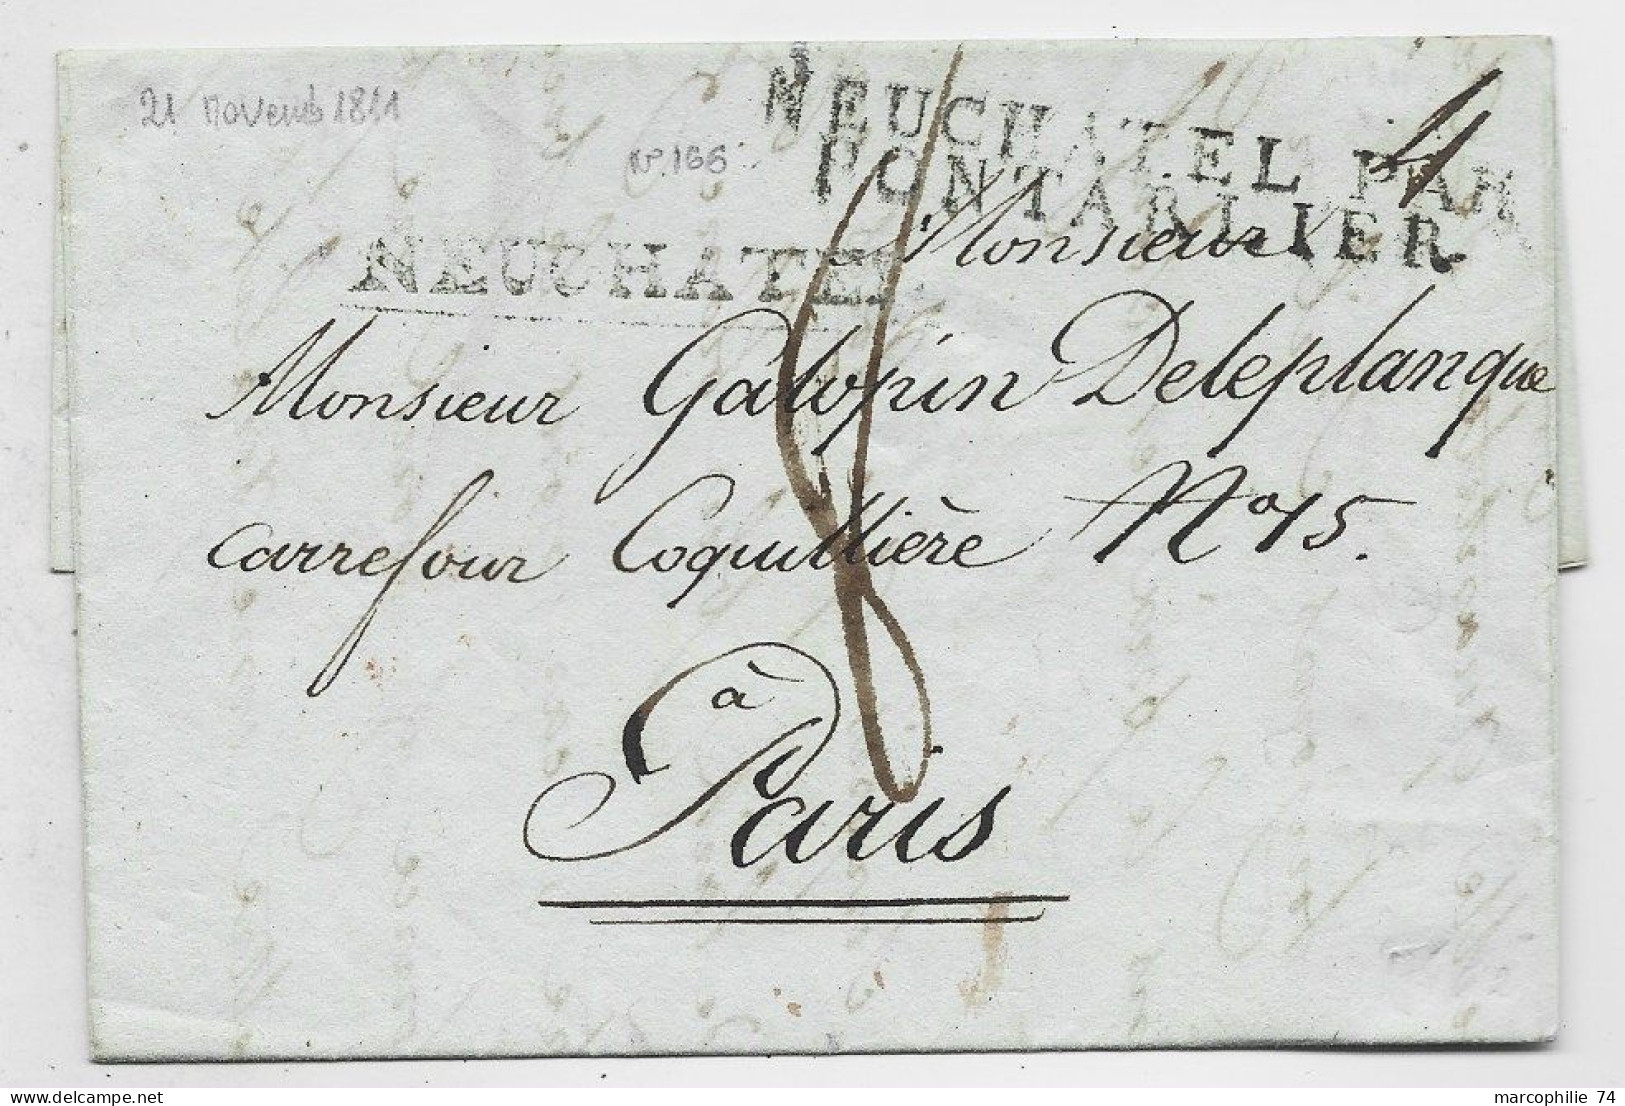 21 Novemb 1811
N° 166
NEUCHATEL PAR
PONTARLIER
NEUCHATEL
4
8
Monsieur
Monsieur Galopin Deleplanque
Carrefour Coquillière N° 15.
à
Paris
marcophilie 74